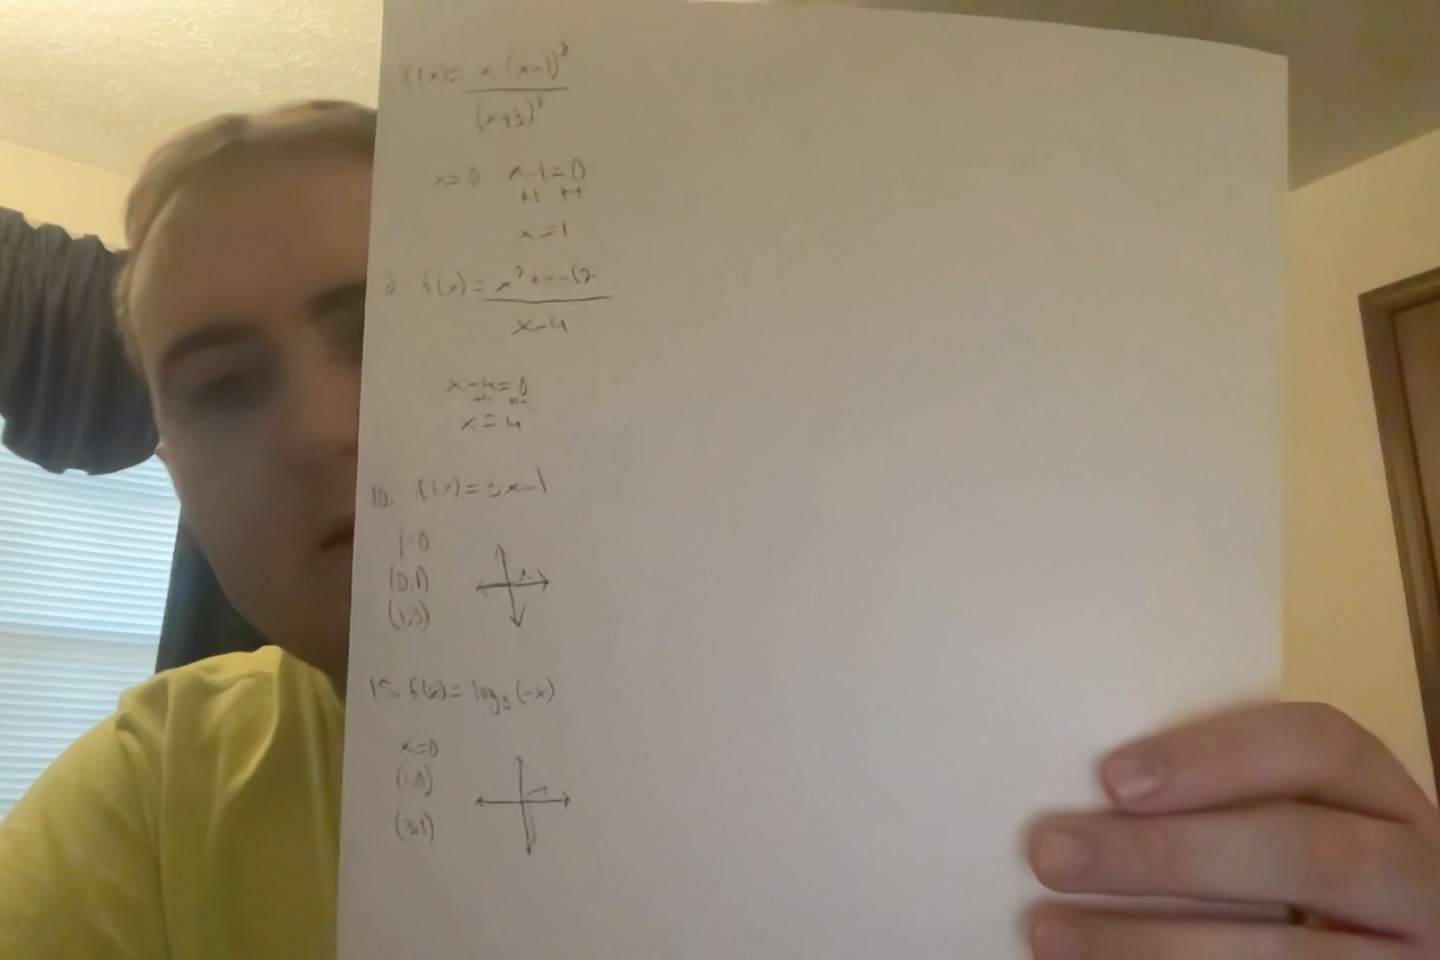 f(x) = x (x-1)²
(x+3)²
x=0 x-1=0
+1 +1
x=1
2. f(x) = x²+x-12
x-4
x-4=0
+4 +4
x=4
10. f(x) = 3x-1
y=0
(0,1)
(1,3)
15. f(x) = log₃(-x)
x=0
(1,0)
(3,1)